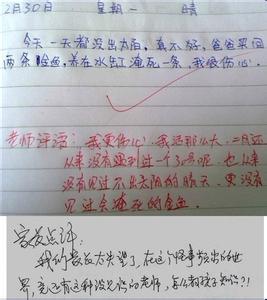 2月30日 星期一 晴
今天一天都没出太阳，真不好，爸爸买回
两条金鱼，养在水缸淹死一条，我很伤心。
老师评语：我更伤心，我活那么大，二月还
从来没有遇到过一个30号呢，也从来
没有见过不出太阳的晴天，更没有
见过会淹死的金鱼。
家长点评：
我们最大失望了，在这个怪事频出的世
界，竟还有这种没见识的老师，怎么教孩子知识？！